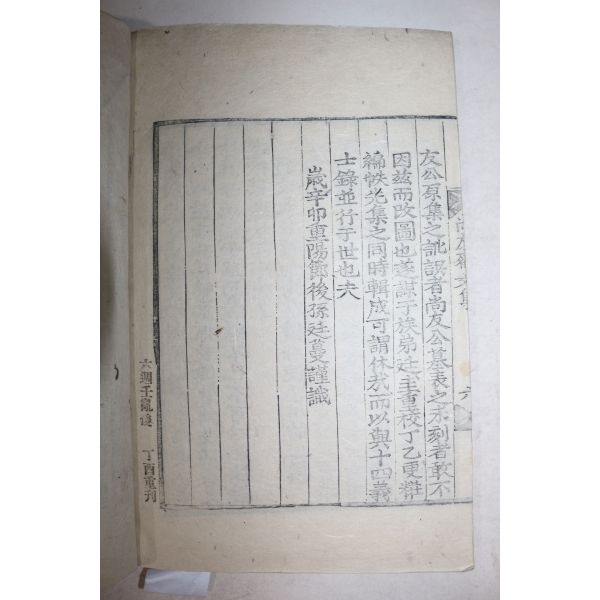 友公原集之訛誤者尚友公墓表之未刻者敢不
因玆而改圖也遂謀于族弟廷圭重校丁乙更辦
編帙先集之同時輯成可謂休哉而以與十四義
士錄並行于世也夫
歲辛卯重陽節後孫廷蔓謹識
尙友 文集
六
六週壬亂後 丁酉重刊